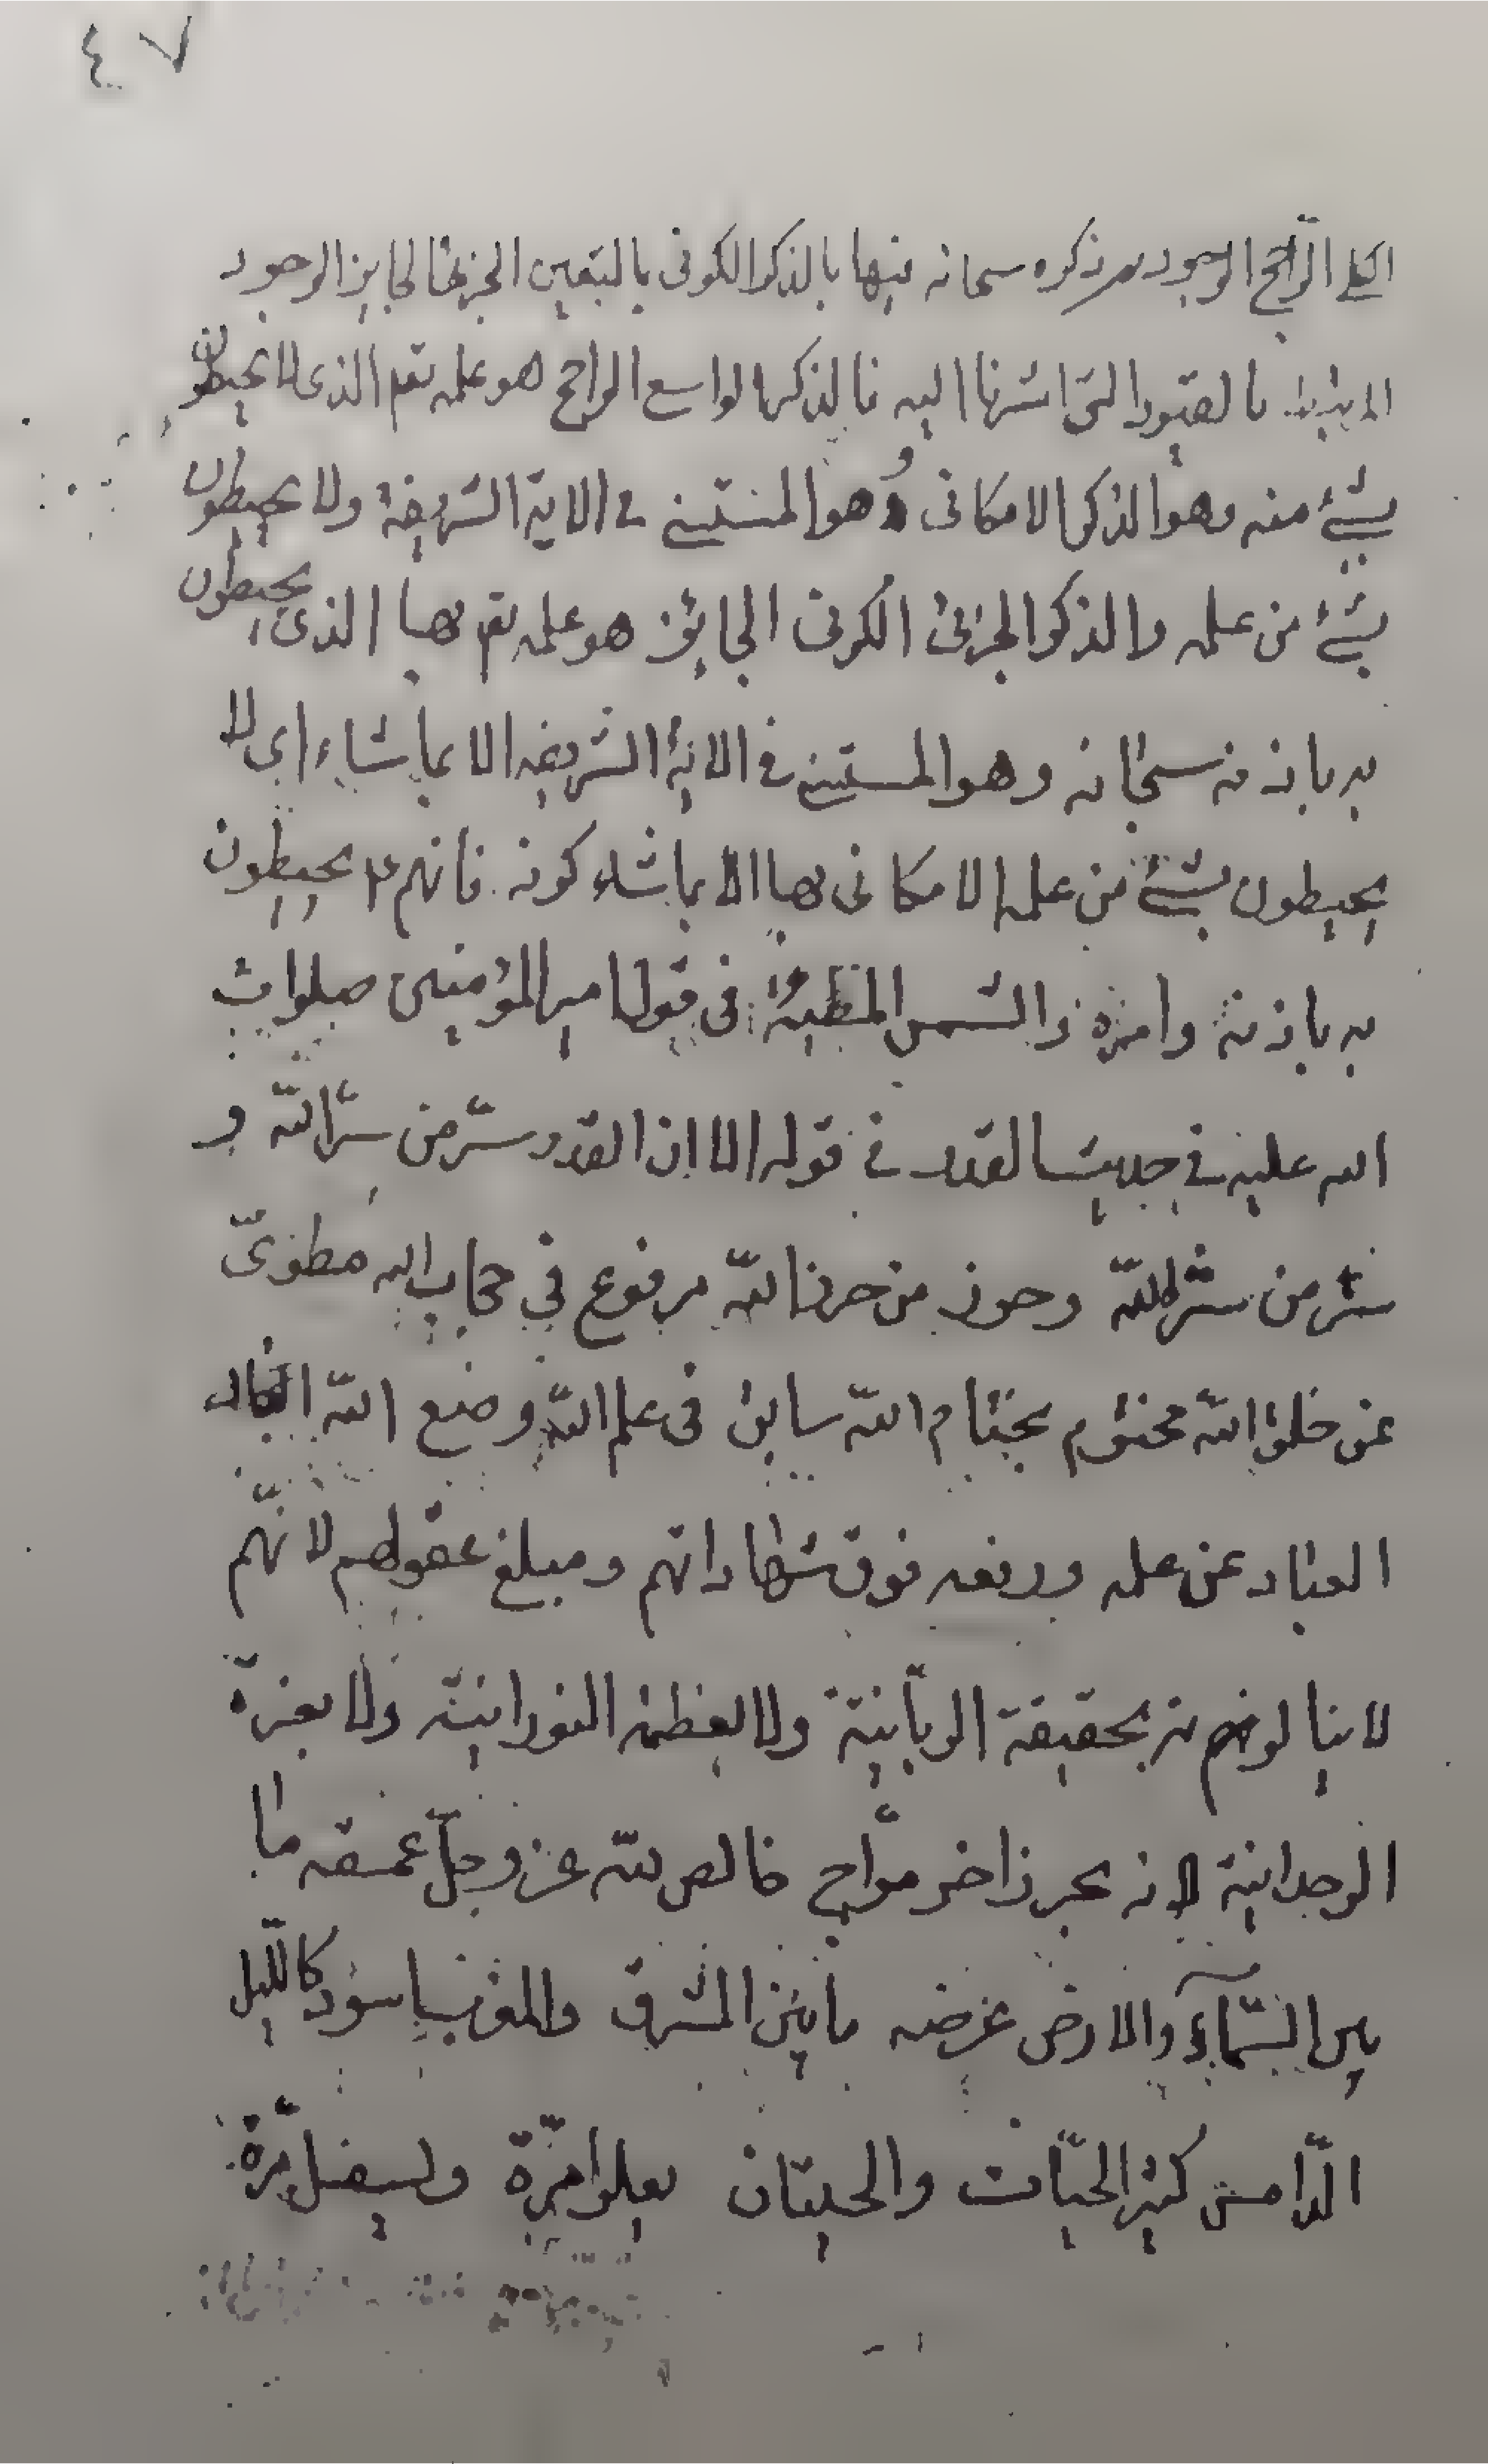 ٤٧
الكلي الراجح الوجود ثم ذكره سبحانه فيها بالذكر الكوني بالتعين الجزئي الجايز الوجود
بالقيود التي اشرنا اليه فالذكر الواسع الراجح هو علمه تعم الذي لا يحيطون
بشئ منه وهو الذكر الامكاني وهو المستثنى في الاية الشريفة ولا يحيطون
بشئ من علمه والذكر الجزئي الكوني الجايز هو علمه تعم بها الذي يحيطون
به باذنه سبحانه وهو المستثنى في الاية الشريفه الا بما شاء اي لا
يحيطون بشئ من علمه الامكاني بها الا بما شاء كونه فانهم ع يحيطون
به باذنه وامره والشمس المضيئة في قول امير المؤمنين صلوات
الله عليه في حديث القدر في قوله الا ان القدر سرّ من سرّ الله و
ستر من ستر الله وحرز من حرز الله مرفوع في حجاب الله مطويّ
عن خلق الله مختوم بختام الله سابق في علم الله وضع الله
العباد عن علمه ورفعه فوق شهاداتهم ومبلغ عقولهم لانّهم
لا ينالونه بحقيقة الربّانية ولا بعظمة النورانية ولا بعزة
الوحدانية لانه بحر زاخر موّاج خالص لله عز وجلّ عمقه ما
بين السّمآء والارض عرضه ما بين المشرق والمغرب اسود كاللّيل
الدّامس كثير الحيّات والحيتان يعلو مرّة ويسفل مرّة